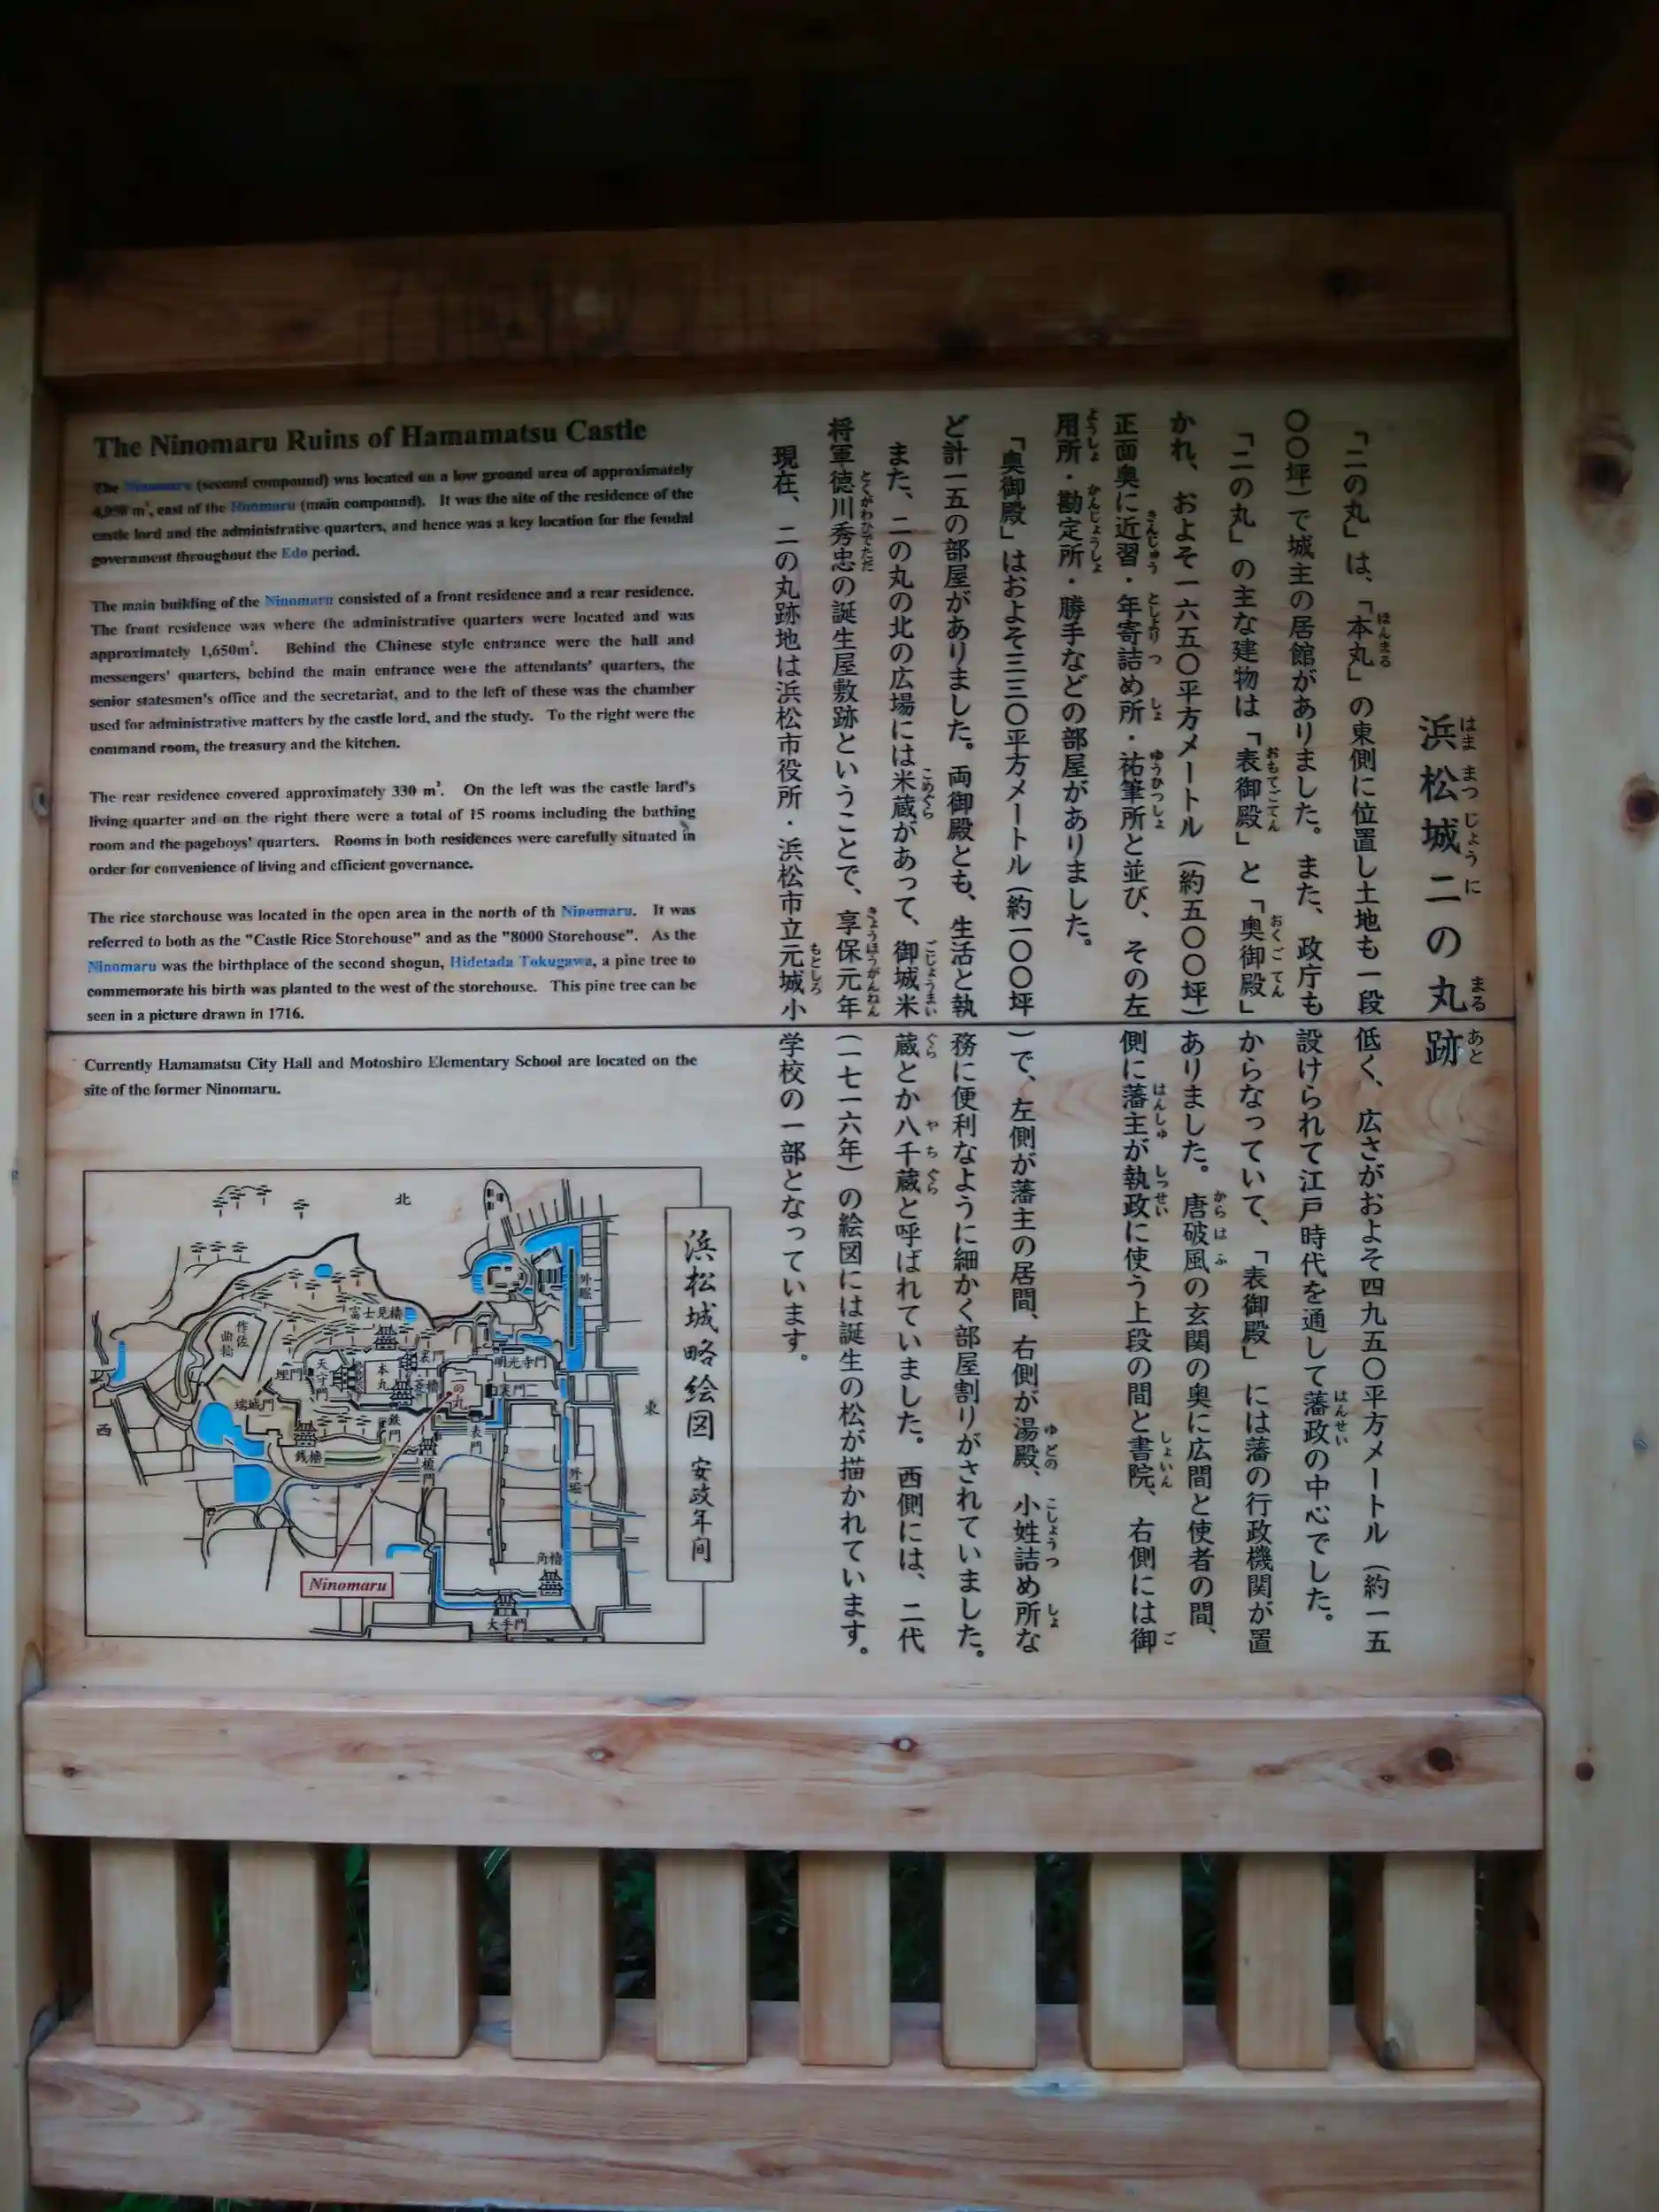 The Ninomaru Ruins of Hamamatsu Castle
The Ninomaru (second compound) was located on a low ground area of approximately
4,950 m², east of the Honmaru (main compound). It was the site of the residence of the
castle lord and the administrative quarters, and hence was a key location for the feudal
government throughout the Edo period.
The main building of the Ninomaru consisted of a front residence and a rear residence.
The front residence was where the administrative quarters were located and was
approximately 1,650m². Behind the Chinese style entrance were the hall and
messengers' quarters, behind the main entrance were the attendants' quarters, the
senior statesmen's office and the secretariat, and to the left of these was the chamber
used for administrative matters by the castle lord, and the study. To the right were the
command room, the treasury and the kitchen.
The rear residence covered approximately 330 m². On the left was the castle lard's
living quarter and on the right there were a total of 15 rooms including the bathing
room and the pageboys' quarters. Rooms in both residences were carefully situated in
order for convenience of living and efficient governance.
The rice storchouse was located in the open area in the north of th Ninomaru. It was
referred to both as the "Castle Rice Storehouse" and as the "8000 Storehouse". As the
Ninomaru was the birthplace of the second shogun, Hidetada Tokugawa, a pine tree to
commemorate his birth was planted to the west of the storehouse. This pine tree can be
seen in a picture drawn in 1716.
Currently Hamamatsu City Hall and Motoshiro Elementary School are located on the
site of the former Ninomaru.
浜松城二の丸跡
はままつじょうにまるあと
「二の丸」は、「本丸」の東側に位置し土地も一段低く、広さがおよそ四九五〇平方メートル（約一五
ほんまる
〇〇坪）で城主の居館がありました。また、政庁も設けられて江戸時代を通して藩政の中心でした。
はんせい
「二の丸」の主な建物は「表御殿」と「奥御殿」からなっていて、「表御殿」には藩の行政機関が置
おもてごてん おくごてん
かれ、およそ一六五〇平方メートル（約五〇〇坪）ありました。唐破風の玄関の奥に広間と使者の間、
からはふ
正面奥に近習・年寄詰め所・祐筆所と並び、その左側に藩主が執政に使う上段の間と書院、右側には御
きんじゅう としより つ しょ ゆうひつしょ はんしゅ しっせい しょいん ご
用所・勘定所・勝手などの部屋がありました。
ようしょ かんじょうしょ
「奥御殿」はおよそ三三〇平方メートル（約一〇〇坪）で、左側が藩主の居間、右側が湯殿、小姓詰め所な
ゆどの こしょうつ しょ
ど計一五の部屋がありました。両御殿とも、生活と執務に便利なように細かく部屋割りがされていました。
また、二の丸の北の広場には米蔵があって、御城米蔵とか八千蔵と呼ばれていました。西側には、二代
こめぐら ごじょうまいぐら やちぐら
将軍徳川秀忠の誕生屋敷跡ということで、享保元年（一七一六年）の絵図には誕生の松が描かれています。
とくがわひでただ きょうほうがんねん
現在、二の丸跡地は浜松市役所・浜松市立元城小学校の一部となっています。
もとしろ
浜松城略絵図 安政年间
北
東
西
外堀
富士見櫓
作佐曲輪
明光寺門
裏門
埋門
天守門
本丸
菱櫓
二の丸
裏門二
端城門
鉄門
表門
銭櫓
榎門
外堀
角櫓
大手門
Ninomaru